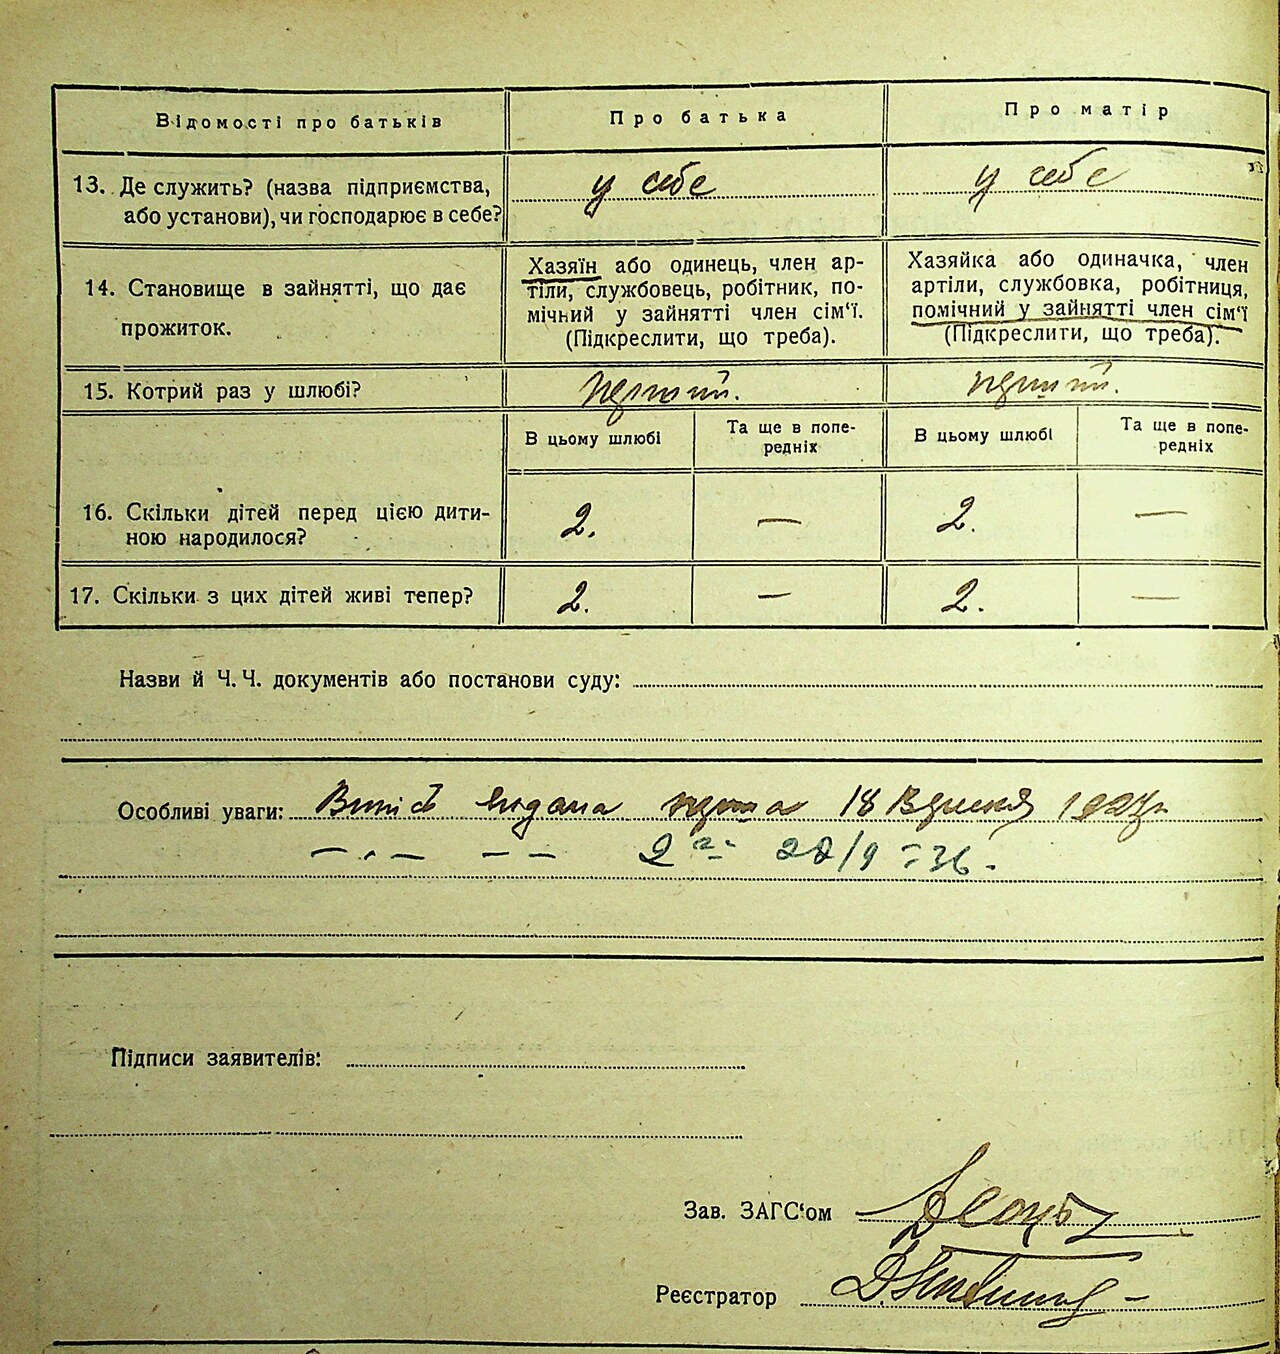 Відомості про батьків
Про батька
Про матір
13. Де служить? (назва підприємства,
або установи), чи господарює в себе?
у себе
у себе
14. Становище в зайнятті, що дає
прожиток.
Хазяїн або одинець, член ар-
тіли, службовець, робітник, по-
мічний у зайнятті член сім'ї.
(Підкреслити, що треба).
Хазяйка або одиначка, член
артіли, службовка, робітниця,
помічний у зайнятті член сім'ї
(Підкреслити, що треба).
15. Котрий раз у шлюбі?
перший.
перший.
В цьому шлюбі
Та ще в попе-
редніх
В цьому шлюбі
Та ще в попе-
редніх
16. Скільки дітей перед цією дити-
ною народилося?
2.
—
2.
—
17. Скільки з цих дітей живі тепер?
2.
—
2.
—
Назви й Ч. Ч. документів або постанови суду:
Особливі уваги: видана перша 18 Вересня 1927р
— „ — — — 2 га 22/9 - 36 -
Підписи заявителів:
Зав. ЗАГС'ом
Реєстратор